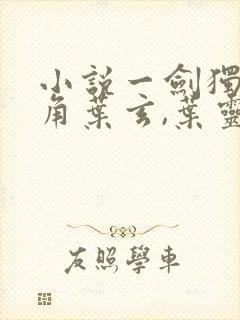 小説一劍獨
角葉玄,葉靈
友照學車